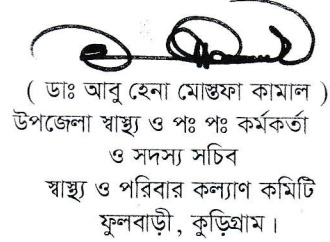 ( ডাঃ আবু হেনা মোস্তফা কামাল )
উপজেলা স্বাস্থ্য ও পঃ পঃ কর্মকর্তা
ও সদস্য সচিব
স্বাস্থ্য ও পরিবার কল্যাণ কমিটি
ফুলবাড়ী, কুড়িগ্রাম।